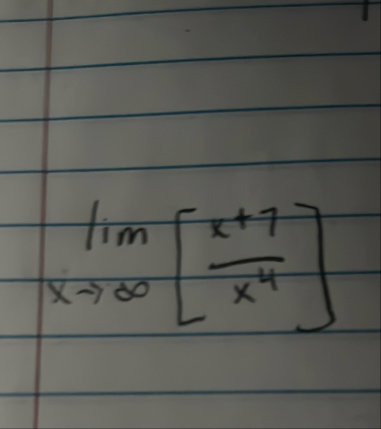 lim x→∞ [(x+7)/(x⁴)]